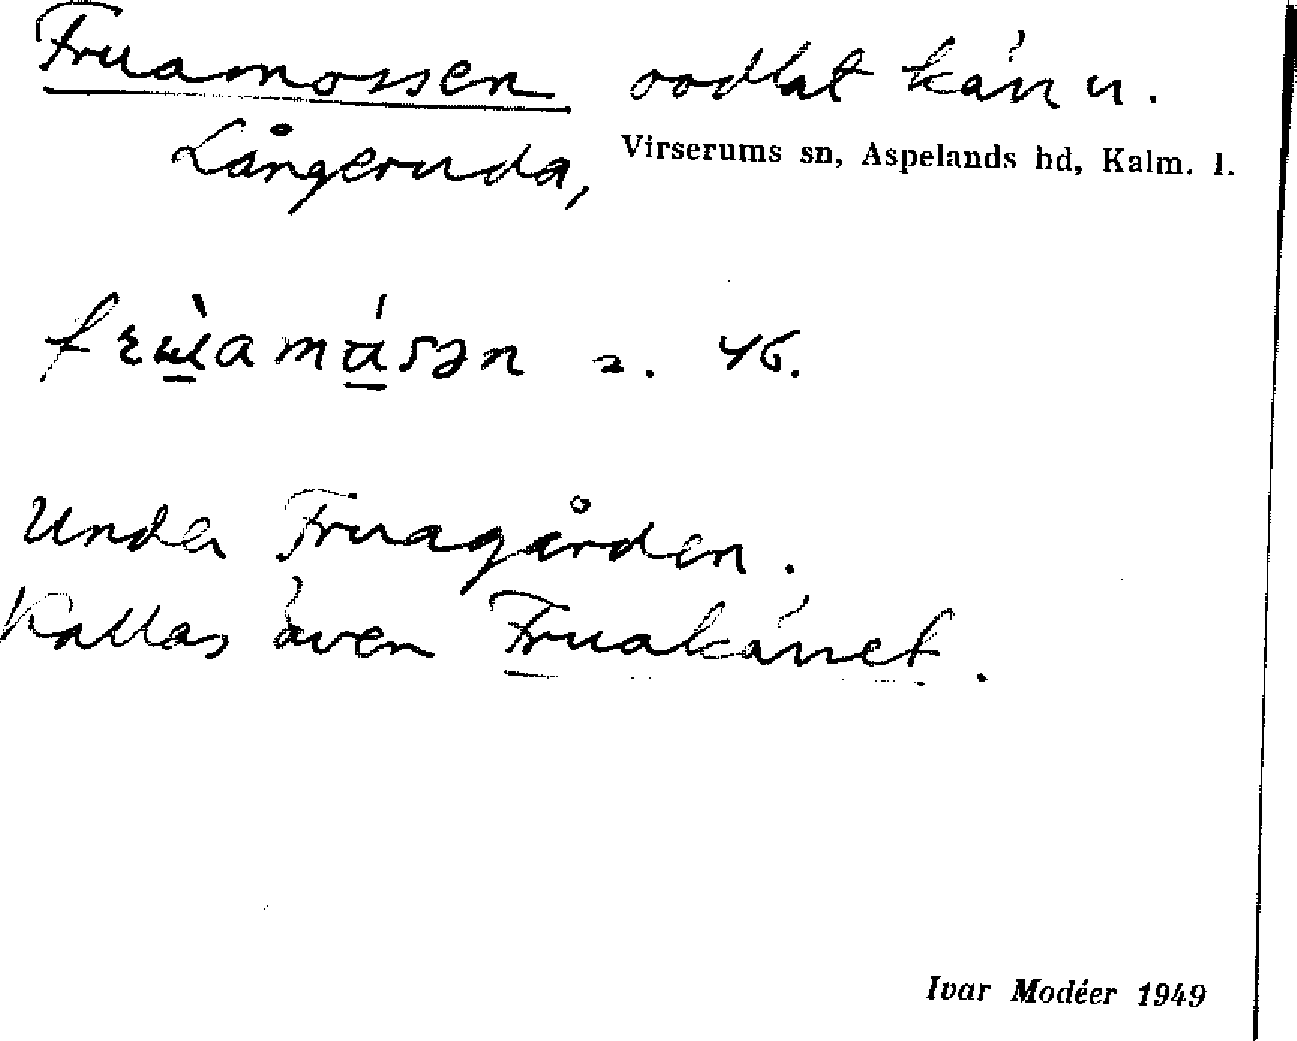 Fruamossen oodlat kärr u.
Långeruda, Virserums sn, Aspelands hd, Kalm. l.
2. 46.
Under Fruagården.
Kallas även Fruakärret.
Ivar Modéer 1949